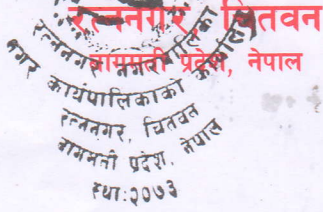 रत्ननगर, चितवन
बागमती प्रदेश, नेपाल
रत्ननगर नगरपालिका
नगर कार्यपालिकाको कार्यालय
रत्ननगर, चितवन
बागमती प्रदेश, नेपाल
स्था:२०७३